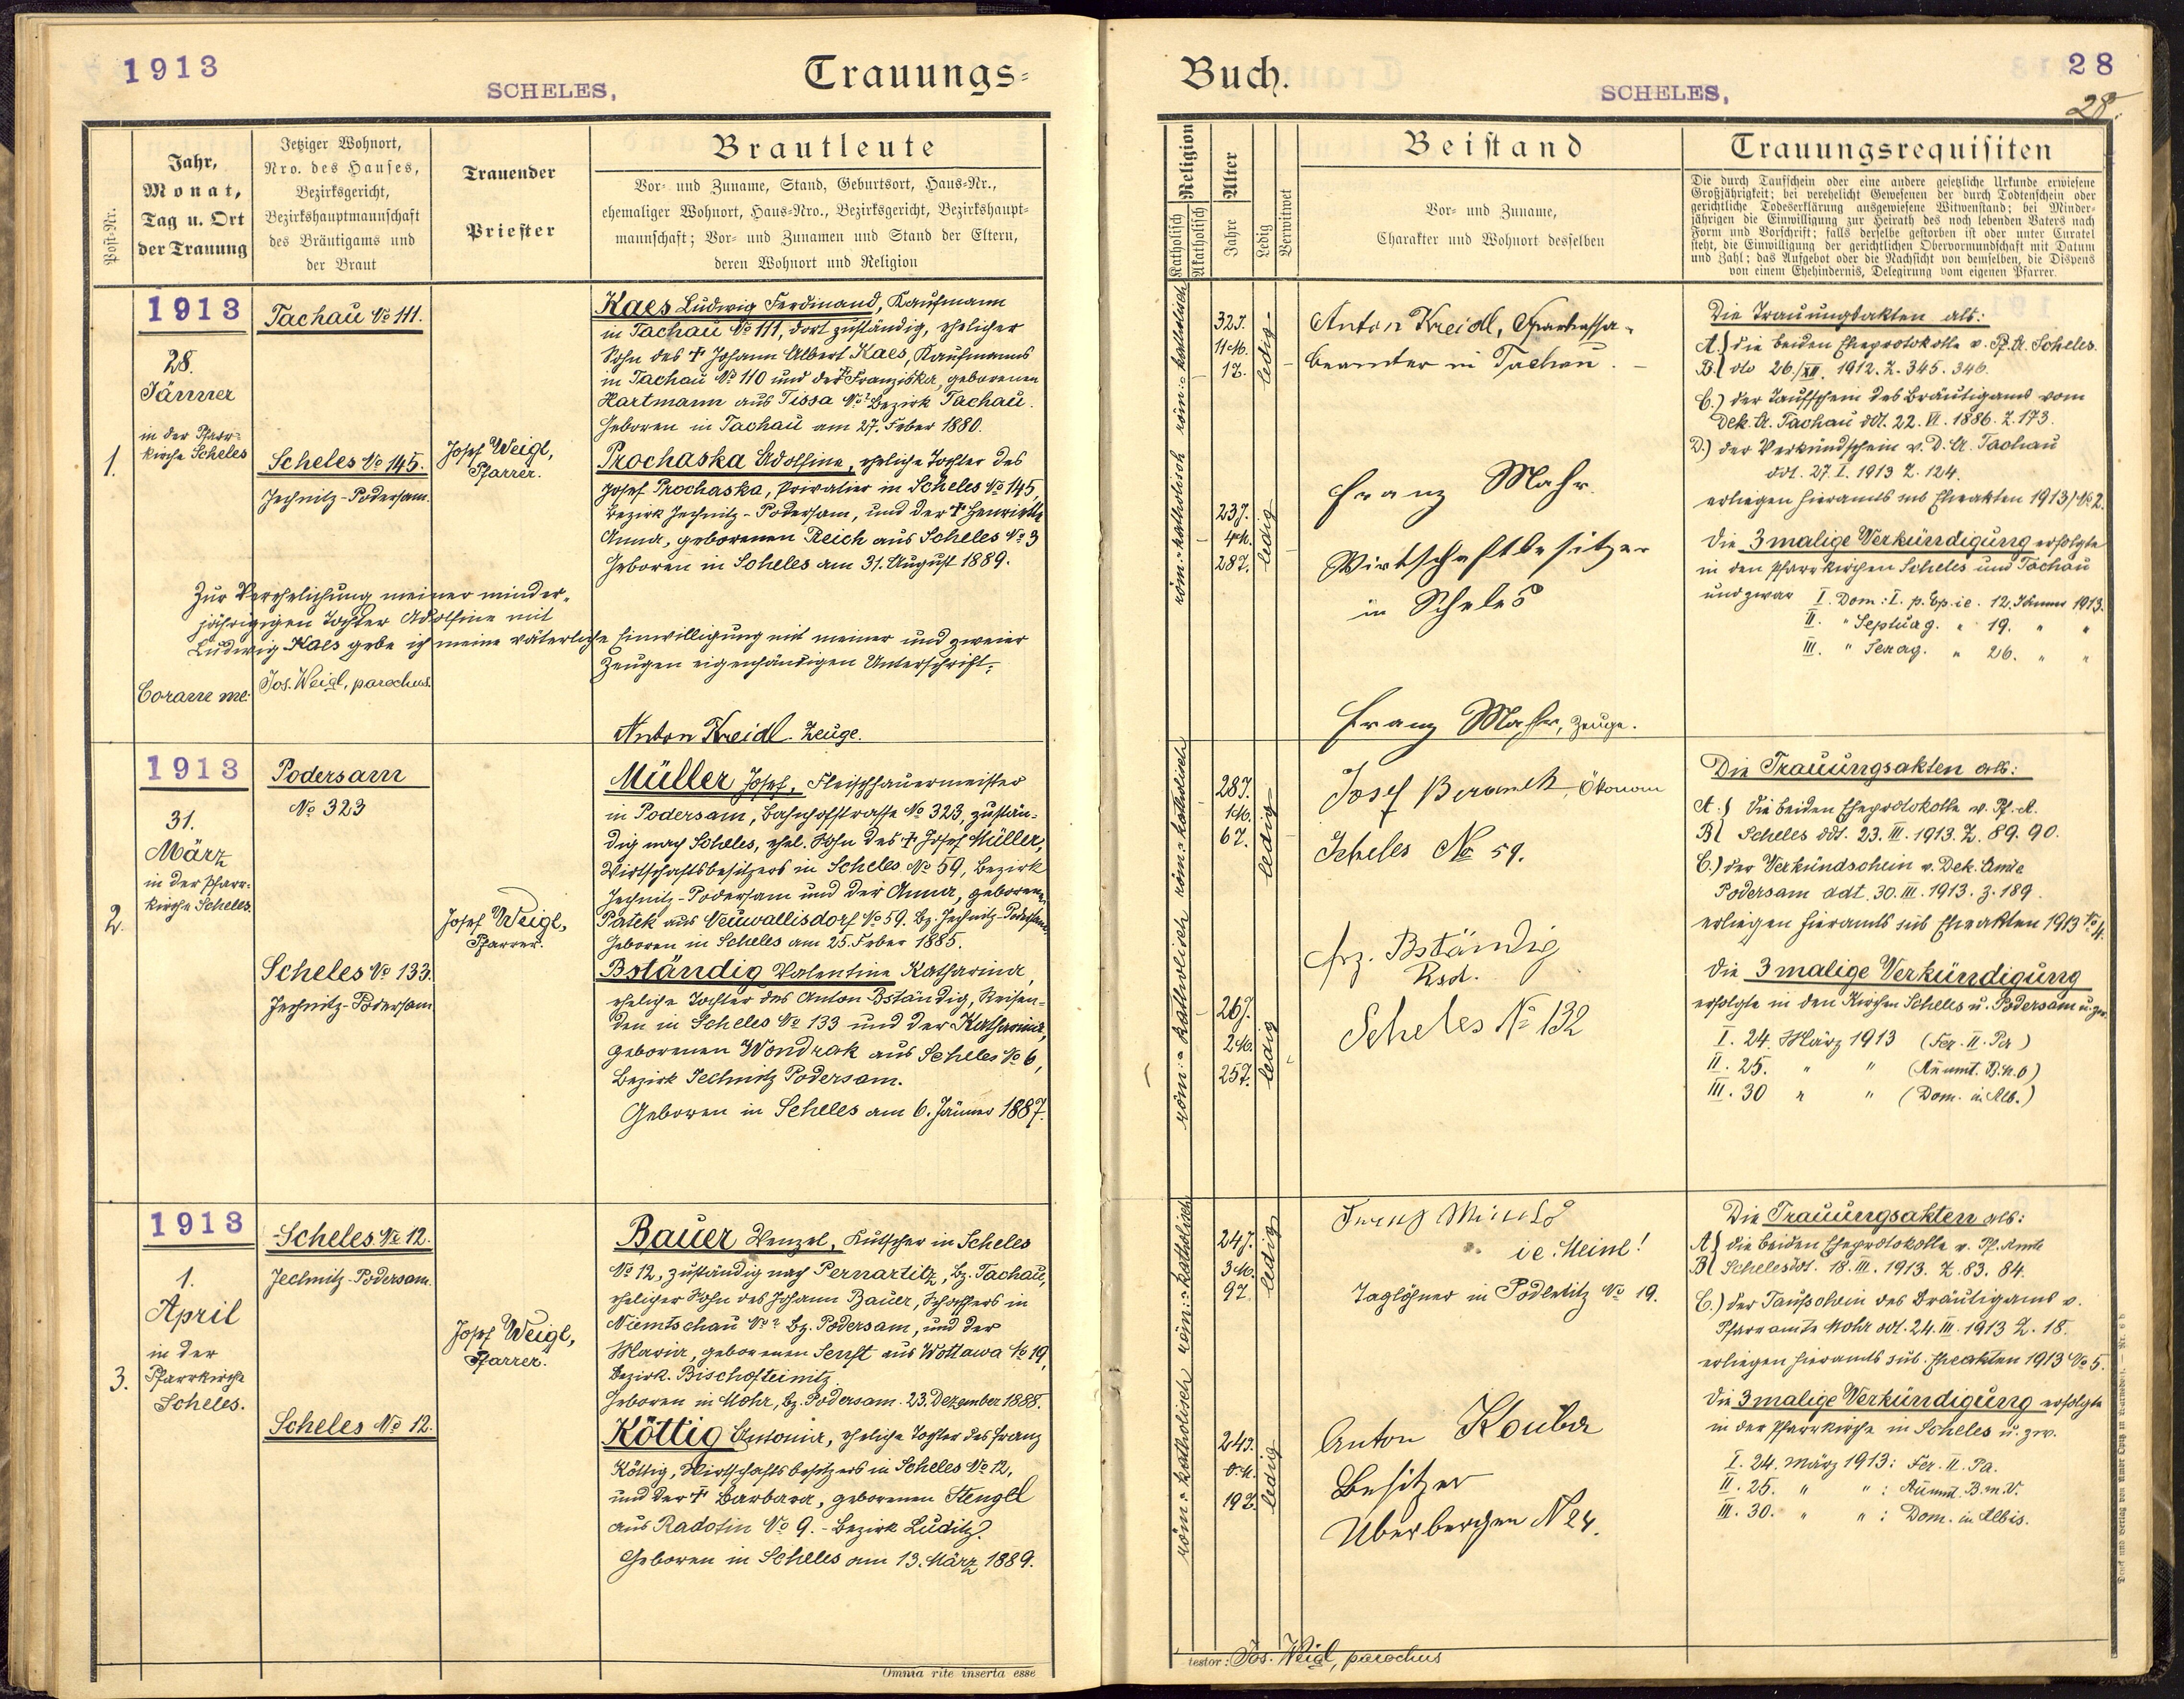 1913
SCHELES,
Trauungs-
Post-Nr.
Jahr,
Monat,
Tag u. Ort
der Trauung
Jetziger Wohnort,
Nro. des Hauses,
Bezirksgericht,
Bezirkshauptmannschaft
des Bräutigams und
der Braut
Trauender
Priester
Brautleute
Vor- und Zuname, Stand, Geburtsort, Haus-Nr.,
ehemaliger Wohnort, Haus-Nro., Bezirksgericht, Bezirkshaupt-
mannschaft; Vor- und Zunamen und Stand der Eltern,
deren Wohnort und Religion
1.
1913
28.
Jänner
in der Pfarr-
kirche Scheles
Tachau No 111.
Scheles No 145.
Jechnitz-Podersam.
Josef Weigl,
Pfarrer.
Kaes Ludwig Ferdinand, Kaufmann
in Tachau No 111, dort zuständig, ehelicher
Sohn des † Johann Albert Kaes, Kaufmanns
in Tachau No 110 und der † Franziska, geborenen
Hartmann aus Tissa No ? Bezirk Tachau.
Geboren in Tachau am 27. Feber 1880.
Prochaska Adolfine, eheliche Tochter des
Josef Prochaska, Privatier in Scheles No 145,
Bezirk Jechnitz-Podersam, und der † Henriette
Anna, geborenen Reich aus Scheles No 3
Geboren in Scheles am 31. August 1889.
Zur Verehelichung meiner minder-
jährigen Tochter Adolfine mit
Ludwig Kaes gebe ich meine väterliche Einwilligung mit meiner und zweier
Zeugen eigenhändigen Unterschrift:
Coram me: Jos. Weigl, parochus.
Anton Kreidl. Zeuge.
2.
1913
31.
März
in der Pfarr-
kirche Scheles.
Podersam
No 323
Scheles No 133.
Jechnitz-Podersam
Josef Weigl,
Pfarrer.
Müller Josef, Fleischhauermeister
in Podersam, Bahnhofstrasse No 323, zustän-
dig nach Scheles, ehel. Sohn des † Josef Müller,
Wirtschaftsbesitzers in Scheles No 59, Bezirk
Jechnitz-Podersam und der Anna, geborenen
Patek aus Neuwallisdorf No 59. Bz. Jechnitz-Podersam
Geboren in Scheles am 25. Feber 1885.
Bständig Valentine Katharina,
eheliche Tochter des Anton Bständig, Reisen-
den in Scheles No 133 und der Katharina,
geborenen Wondrak aus Scheles No 6,
Bezirk Jechnitz Podersam.
Geboren in Scheles am 6. Jänner 1887.
3.
1913
1.
April
in der
Pfarrkirche
Scheles.
Scheles No 12.
Jechnitz-Podersam.
Scheles No 12.
Josef Weigl,
Pfarrer.
Bauer Wenzel, Kutscher in Scheles
No 12, zuständig nach Pernartitz, Bz. Tachau,
ehelicher Sohn des Johann Bauer, Schaffers in
Niemtschau No ? Bz. Podersam, und der
Maria, geborenen Senft aus Wottawa No 19,
Bezirk. Bischofteinitz.
Geboren in Mohr, Bz. Podersam. 23. Dezember 1888.
Köttig Antonia, eheliche Tochter des Franz
Köttig, Wirtschaftsbesitzers in Scheles No 12,
und der † Barbara, geborenen Stengl
aus Radotin No 9. - Bezirk Luditz.
Geboren in Scheles am 13. März 1889.
Omnia rite inserta esse
Buch.
SCHELES,
28
28.
Religion
Katholisch
Akatholisch
Alter
Jahre
Ledig
Verwitwet
Beistand
Vor- und Zuname,
Charakter und Wohnort desselben
Trauungsrequisiten
Die durch Taufschein oder eine andere gesetzliche Urkunde erwiesene
Großjährigkeit; bei verehelicht Gewesenen der durch Todtenschein oder
gerichtliche Todeserklärung ausgewiesene Witwenstand; bei Minder-
jährigen die Einwilligung zur Heirath des noch lebenden Vaters nach
Form und Vorschrift; falls derselbe gestorben ist oder unter Curatel
steht, die Einwilligung der gerichtlichen Obervormundschaft mit Datum
und Zahl; das Aufgebot oder die Nachsicht von demselben, die Dispens
von einem Ehehindernis, Delegirung vom eigenen Pfarrer.
röm:-katholisch
32J.
11M.
1T.
ledig
röm:-katholisch
23J.
4M.
28T.
ledig
Anton Kreidl, Sparkassa-
beamter in Tachau.
Franz Mahr
Wirtschaftsbesitzer
in Scheles
Franz Mahr, Zeuge.
Die Trauungsakten als:
A.) die beiden Eheprotokolle v. Pf. A. Scheles.
B.) dto 26./XII. 1912. Z. 345. 346.
C.) der Taufschein des Bräutigams vom
Dek. A. Tachau ddt. 22. VI. 1886. Z. 173.
D.) der Verkündschein v. D. A. Tachau
ddt. 27. I. 1913 Z. 124.
erliegen hieramts sub Eheakten 1913/No 2.
Die 3malige Verkündigung erfolgte
in den Pfarrkirchen Scheles und Tachau
und zwar I. Dom: I. p. Ep. ie. 12. Jänner 1913.
II. " Septuag. " 19. " "
III. " Sexag. " 26. " "
röm:-katholisch
28J.
1M.
6T.
ledig
röm:-katholisch
26J.
2M.
25T.
ledig
Josef Beranek, Ökonom
Scheles No 59.
Frz. Bständig
Rsd.
Scheles No 132
Die Trauungsakten als:
A.) Die beiden Eheprotokolle v. Pf. A.
B.) Scheles ddt. 23. III. 1913. Z. 89. 90.
C.) der Verkündschein v. Dek. Amte
Podersam ddt. 30. III. 1913. Z. 189.
erliegen hieramts sub Eheakten 1913 No 4.
Die 3malige Verkündigung
erfolgte in den Kirchen Scheles u. Podersam u. zw.
I. 24. März 1913 (Fer. II. Pa)
II. 25. " " (Anunt. B.M.V)
III. 30 " " (Dom. in Alb.)
röm:-katholisch
24J.
3M.
9T.
ledig
röm:-katholisch
24J.
0M.
19T.
ledig
i e. Meinl!
Taglöhner in Podletitz No 19.
Anton Kouba
Besitzer
Überbergen No 24.
Die Trauungsakten als:
A.) die beiden Eheprotokolle v. Pf. Amte
B.) Scheles ddt. 18. III. 1913. Z. 83. 84.
C.) der Taufschein des Bräutigams v.
Pfarramte Mohr ddt. 24. III. 1913 Z. 18.
erliegen hieramts sub. Eheakten 1913 No 5.
Die 3malige Verkündigung erfolgte
in der Pfarrkirche in Scheles u. zw.
I. 24. März 1913: Fer. II. Pa.
II. 25. " " : Anunt. B. M. V.
III. 30. " " : Dom. in Albis.
testor: Jos. Weigl, parochus